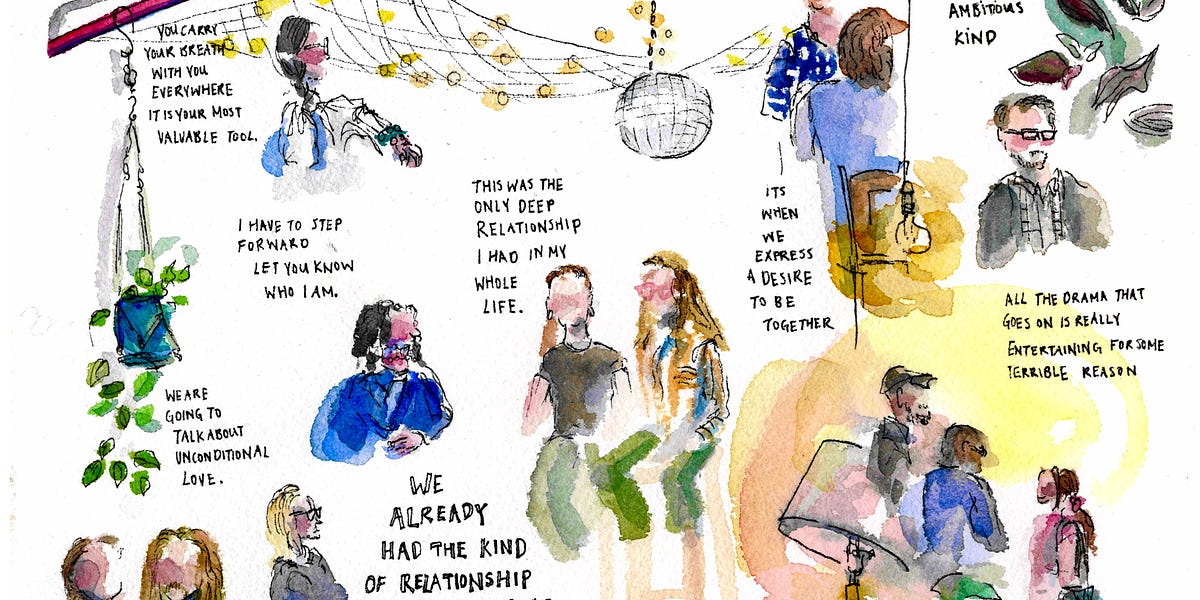 YOU CARRY
YOUR BREATH
WITH YOU
EVERYWHERE
IT IS YOUR MOST
VALUABLE TOOL.
AMBITIOUS
KIND
I HAVE TO STEP
FORWARD
LET YOU KNOW
WHO I AM.
THIS WAS THE
ONLY DEEP
RELATIONSHIP
I HAD IN MY
WHOLE
LIFE.
ITS
WHEN
WE
EXPRESS
A DESIRE
TO BE
TOGETHER
ALL THE DRAMA THAT
GOES ON IS REALLY
ENTERTAINING FOR SOME
TERRIBLE REASON
WE ARE
GOING TO
TALK ABOUT
UNCONDITIONAL
LOVE.
WE
ALREADY
HAD THE KIND
OF RELATIONSHIP